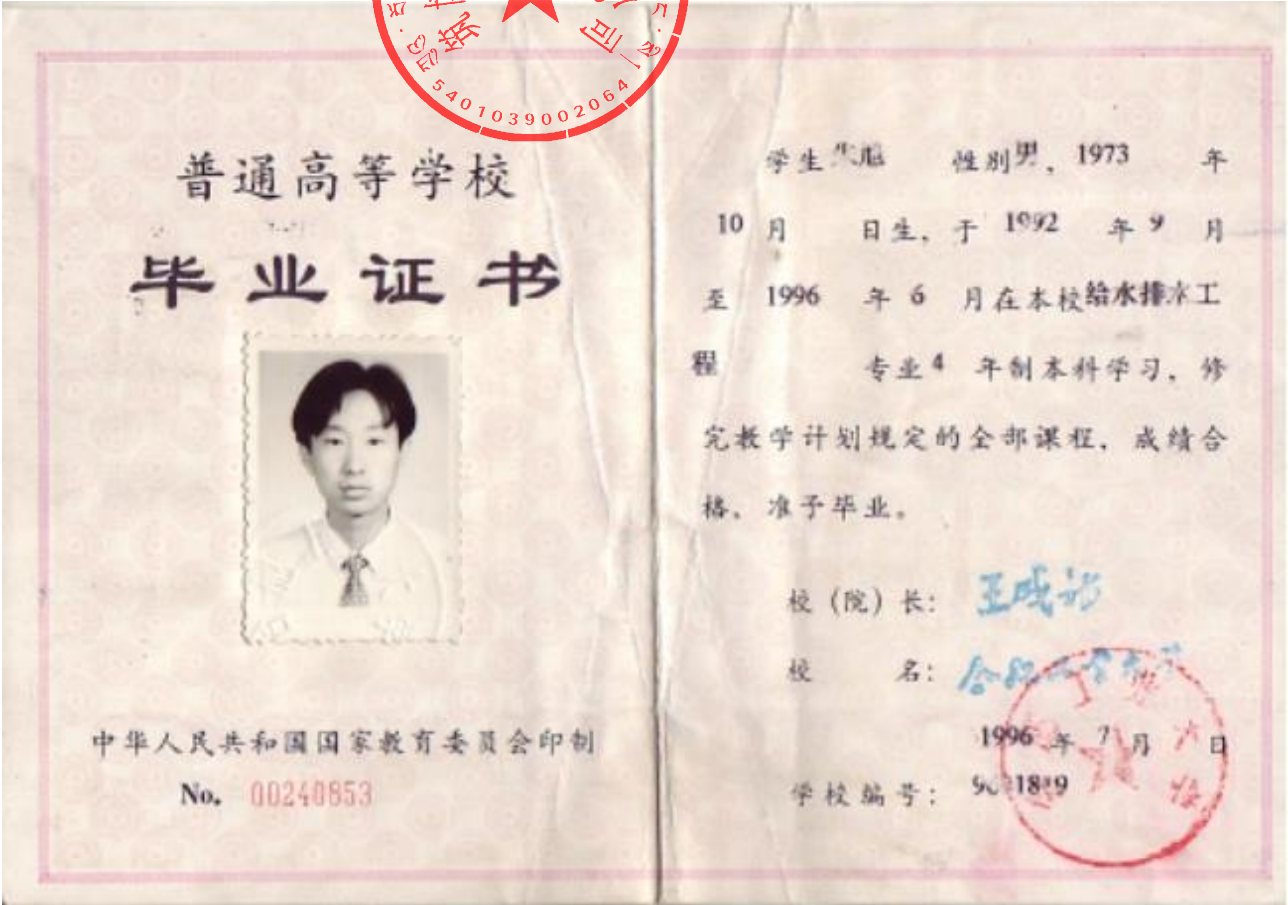 5401039002064
普通高等学校
毕业证书
中华人民共和国国家教育委员会印制
No. 00240853
学生 性别男，1973 年
10 月 日生，于 1992 年 9 月
至 1996 年 6 月在本校给水排水工
程 专业4 年制本科学习，修
完教学计划规定的全部课程，成绩合
格，准予毕业。
校（院）长：
校 名：
1996 年 7 月 日
学校编号：